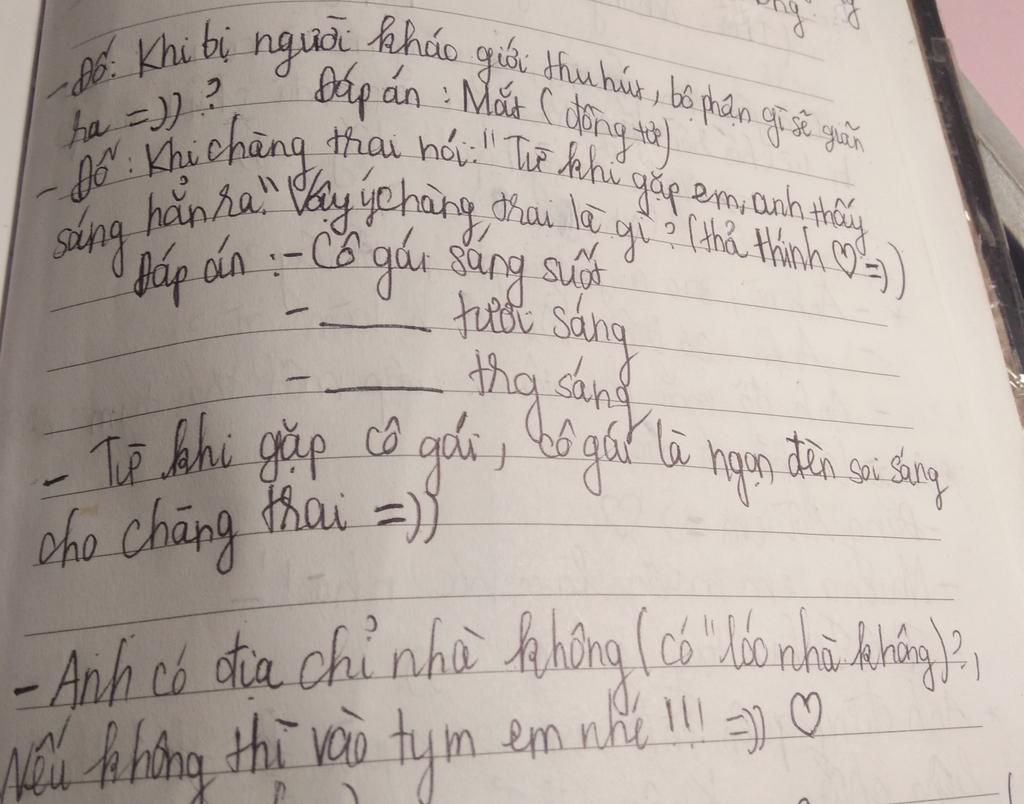 - Đố: Khi bị người kháo giới thu hút, bộ phận gì sẽ giãn
ha =)) ? Đáp án : Mắt ( đồng tử)
- Đố : Khi chàng trai nói: "Từ khi gặp em, anh thấy
sáng hẳn ra." Vậy ý chàng trai là gì ? (thả thính ♡ =))
Đáp án : - Cô gái sáng suốt
- ______ tươi sáng
- ______ thg sáng
- Từ khi gặp cô gái, cô gái là ngọn đèn soi sáng
cho chàng trai =))
- Anh có địa chỉ nhà không (có "lóo nhà không)?,
Nếu không thì vào tym em nhé !!! =)) ♡